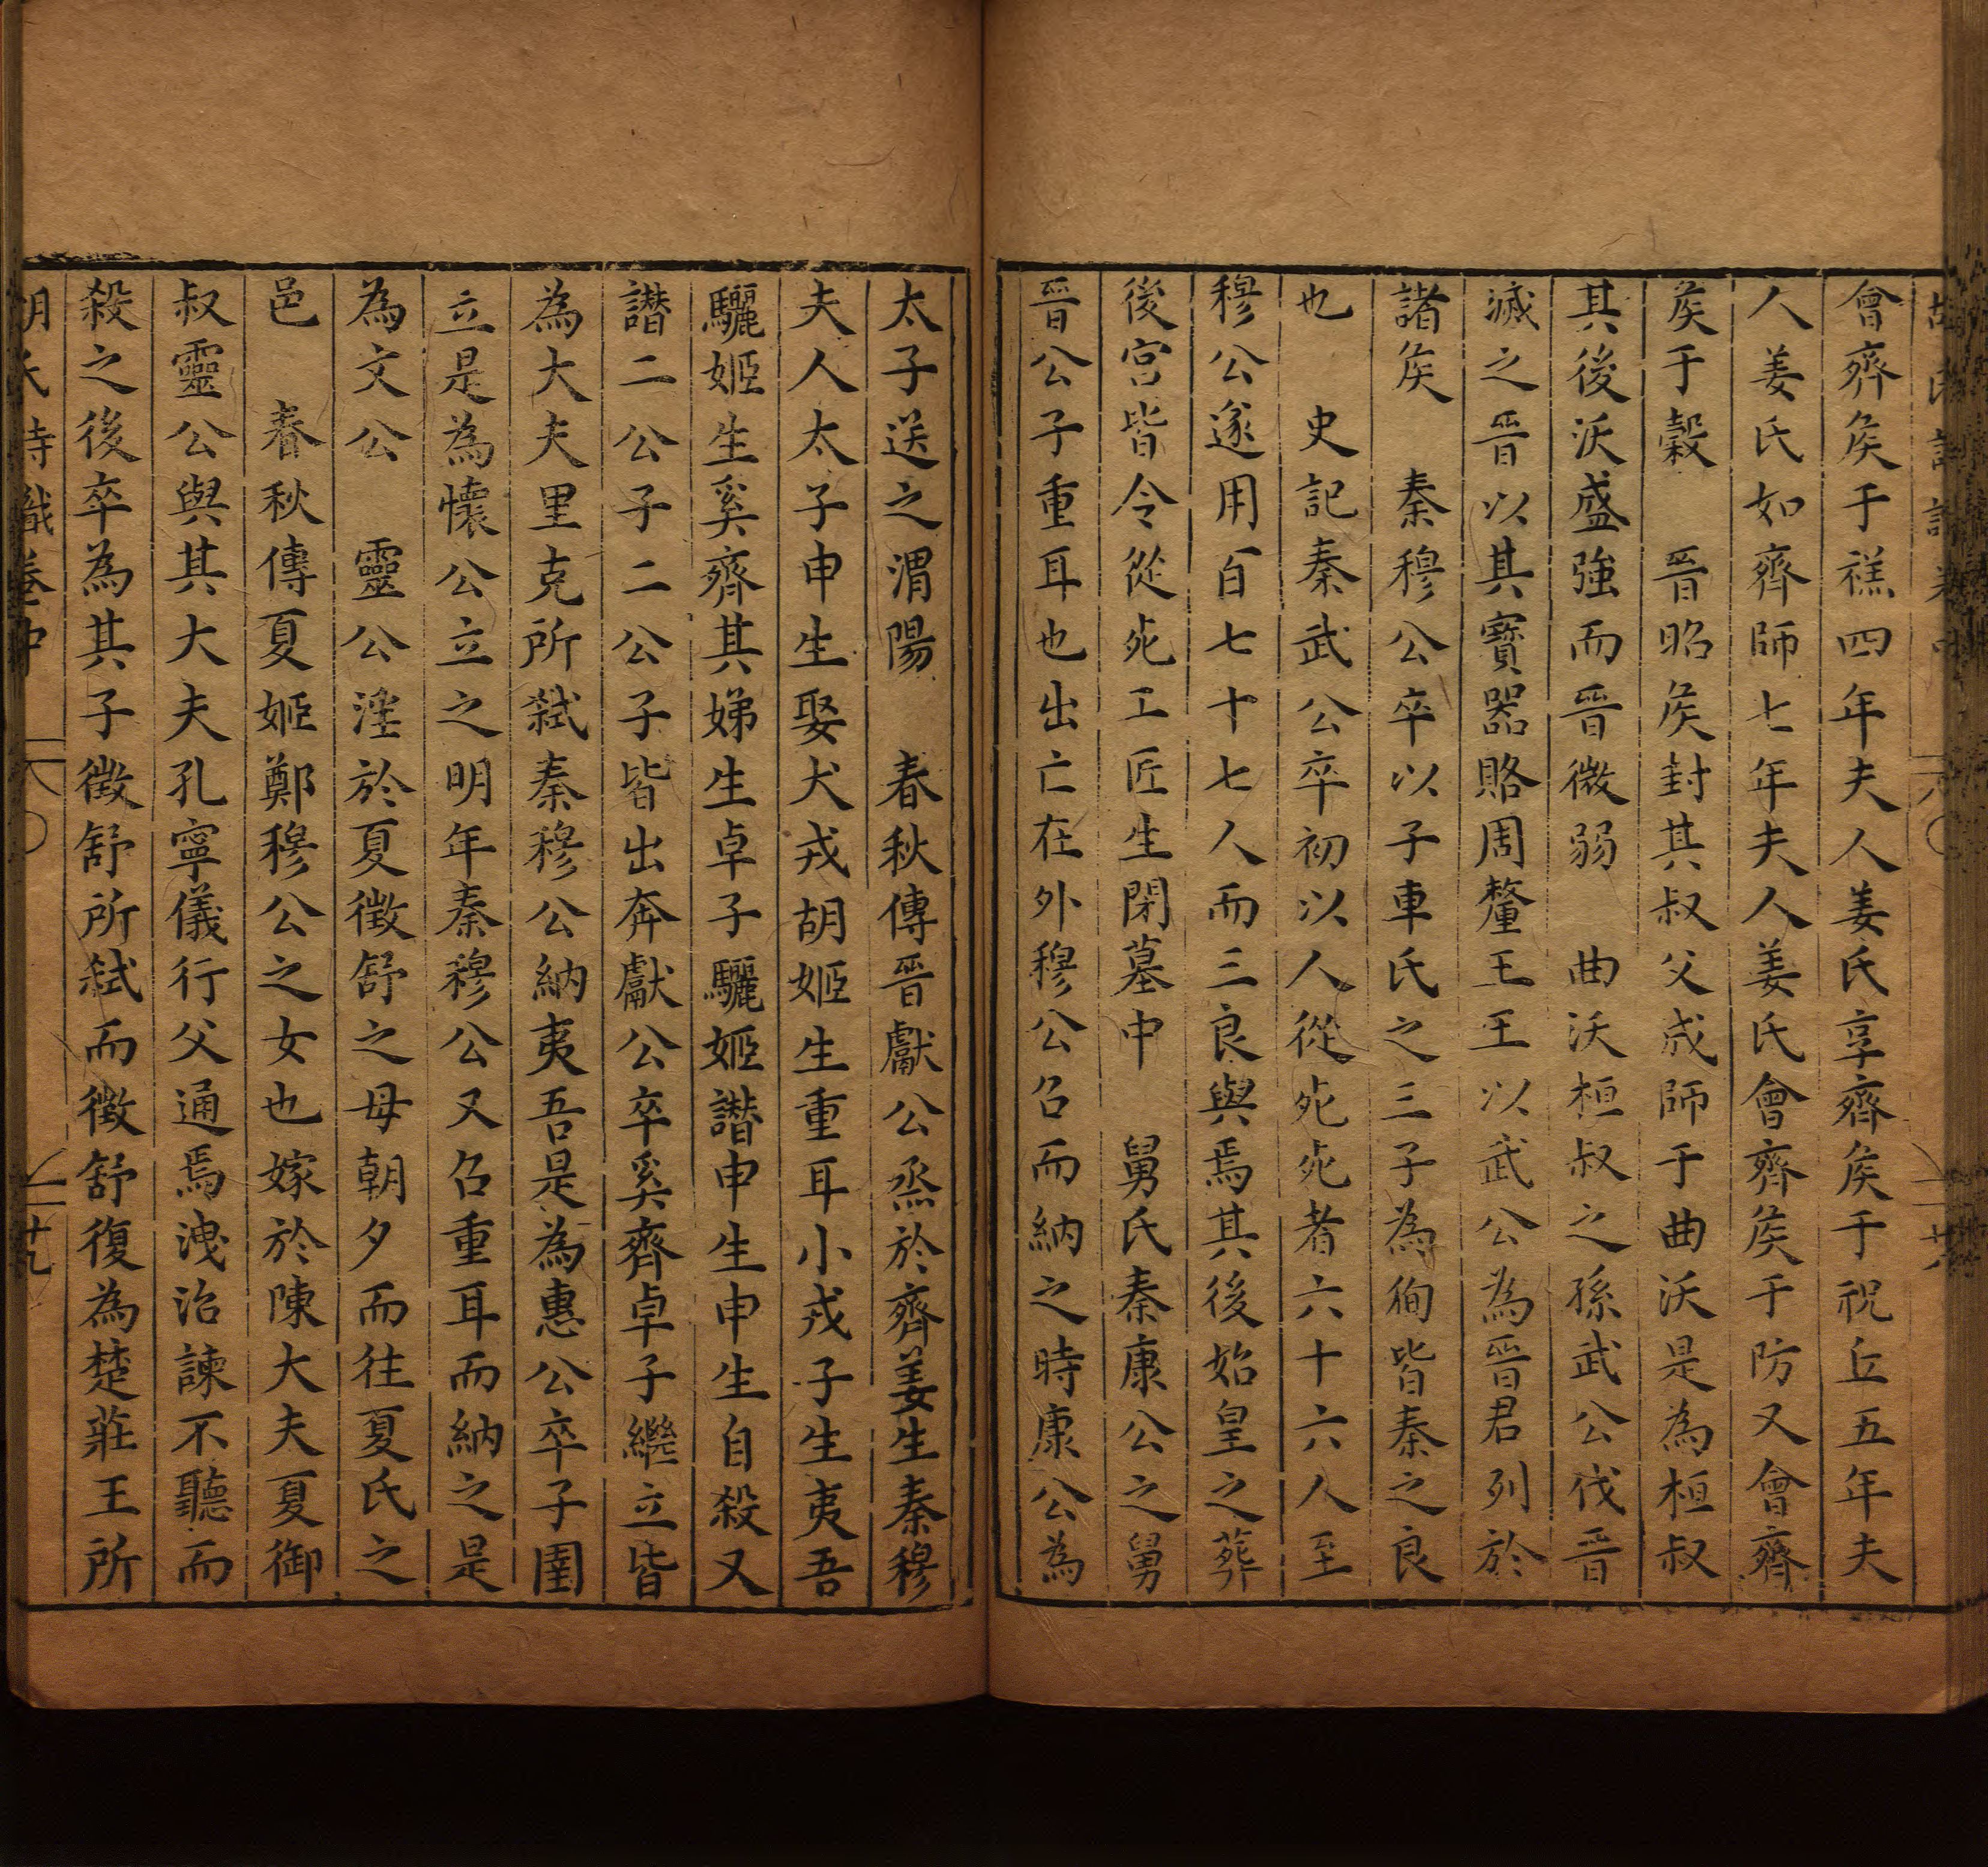 會齊矦于禚四年夫人姜氏享齊矦于祝丘五年夫
人姜氏如齊師七年夫人姜氏會齊矦于防又會齊
矦于穀　晉昭矦封其叔父成師于曲沃是為桓叔
其後沃盛強而晉微弱　曲沃桓叔之孫武公伐晉
滅之晉以其寳器賂周釐王王以武公為晉君列於
諸矦　秦穆公卒以子車氏之三子為徇皆秦之良
也　史記秦武公卒初以人從死死者六十六人至
穆公遂用百七十七人而三良與焉其後始皇之葬
後宮皆令從死工匠生閉墓中　舅氏秦康公之舅
晉公子重耳也出亡在外穆公召而納之時康公為
太子送之渭陽　春秋傳晉獻公烝於齊姜生秦穆
夫人太子申生娶犬戎胡姬生重耳小戎子生夷吾
驪姬生奚齊其娣生卓子驪姬譖申生申生自殺又
譖二公子二公子皆出奔獻公卒奚齊卓子繼立皆
為大夫里克所弒秦穆公納夷吾是為惠公卒子圉
立是為懷公立之明年秦穆公又召重耳而納之是
為文公　靈公淫於夏徵舒之母朝夕而往夏氏之
邑　春秋傳夏姬鄭穆公之女也嫁於陳大夫夏御
叔靈公與其大夫孔寧儀行父通焉洩治諫不聽而
殺之後卒為其子徵舒所弒而徵舒復為楚莊王所